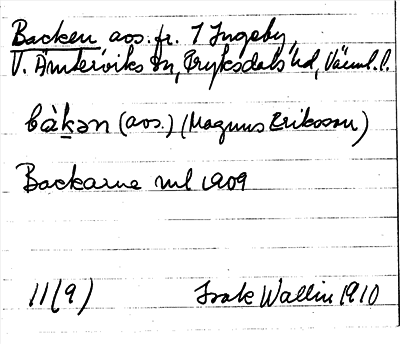 Backen avs. fr. 7 Ingeby,
V. Ämterviks sn, Fryksdals hd, Värml. l.
bàkən (avs.) (Magnus Eriksson)
Backarne ml 1909
11(9) Isak Wallin 1910